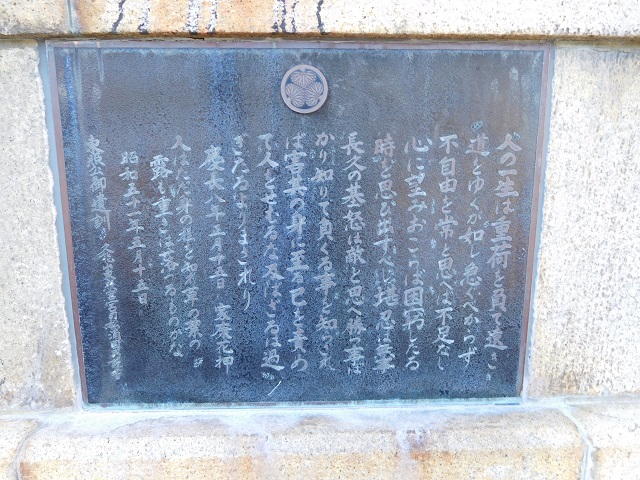 人の一生は重荷を負て遠き
道をゆくが如し急ぐべからず
不自由を常と思へば不足なし
心に望みおこらば困窮したる
時を思ひ出すべし堪忍は無事
長久の基怒は敵と思へ勝つ事ば
かり知りて負くる事を知らざれ
ば害其の身に至る己を責め
て人をせむるな及ばざるは過
ぎたるよりまされり
慶長八年正月十五日 家康花押
人はただ身の程を知れ草の葉の
露も重きは落つるものかな
昭和五十一年五月十五日
東照公御遺訓